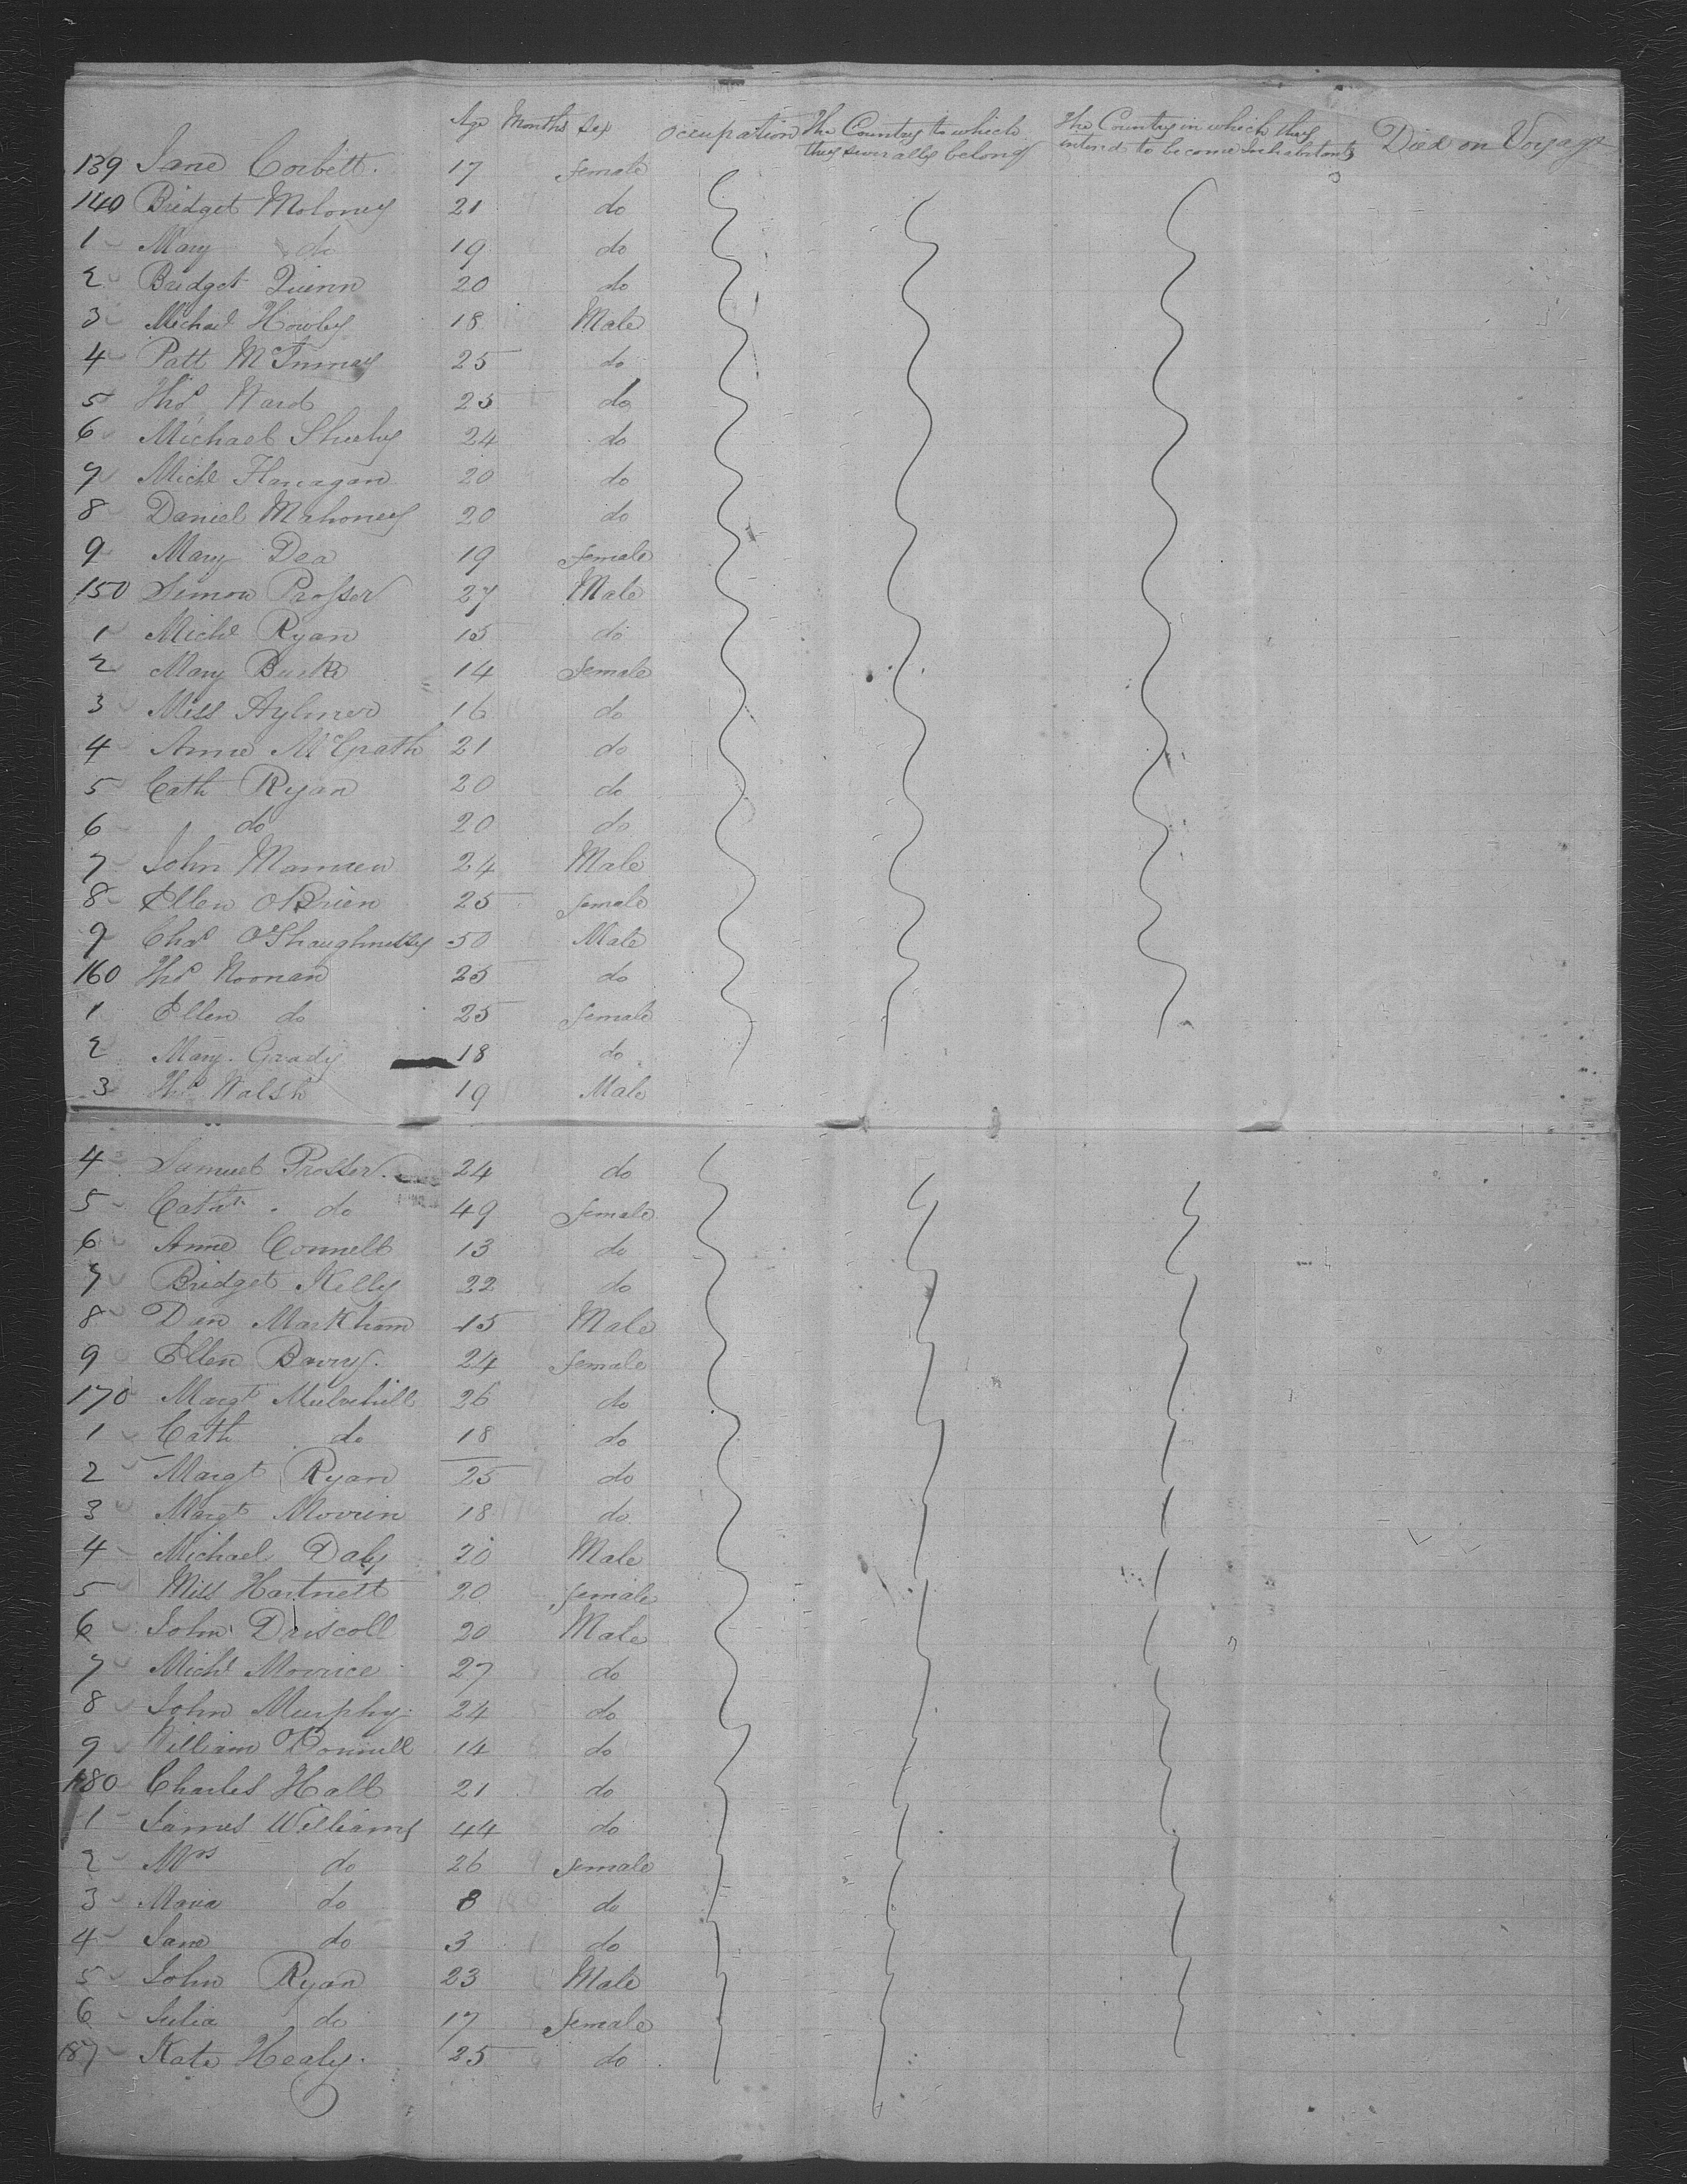 Age Months Sex Occupation The Country to which they severally belong The Country in which they intend to become Inhabitants Died on Voyage
139 Jane Corbett 17 female
140 Bridget Moloney 21 do
1 Mary do 19 do
2 Bridget Quinn 20 do
3 Michael Howley 18 Male
4 Patt 25 do
5 Thos Ward 25 do
6 Michael Sheehy 24 do
7 Michl Flanagan 20 do
8 Daniel Mahoney 20 do
9 Mary Dea 19 female
150 Simon Prosser 27 Male
1 Michl Ryan 15 do
2 Mary Burke 14 female
3 Miss Aylmer 16 do
4 Anne McGrath 21 do
5 Cath Ryan 20 do
6 do 20 do
7 John 24 Male
8 Ellen OBrien 25 female
9 Chas O'Shaughnessy 50 Male
160 Thos Noonan 25 do
1 Ellen do 25 female
2 Mary Grady 18 do
3 Thos Walsh 19 Male
4 Samuel Prosser 24 do
5 Cath do 49 female
6 Anne Connell 13 do
7 Bridget Kelly 22 do
8 Dan Markham 15 Male
9 Ellen 24 female
170 Margt Mulvihill 26 do
1 Cath do 18 do
2 Margt Ryan 25 do
3 Margt 18 do
4 Michael Daly 20 Male
5 Miss Hartnett 20 female
6 John Driscoll 20 Male
7 Michl 27 do
8 John Murphy 24 do
9 William 14 do
180 Charles Hall 21 do
1 James Williams 44 do
2 Mrs do 26 female
3 Maria do 8 do
4 Jane do 3 do
5 John Ryan 23 Male
6 Julia do 17 female
187 Kate Healy. 25 do